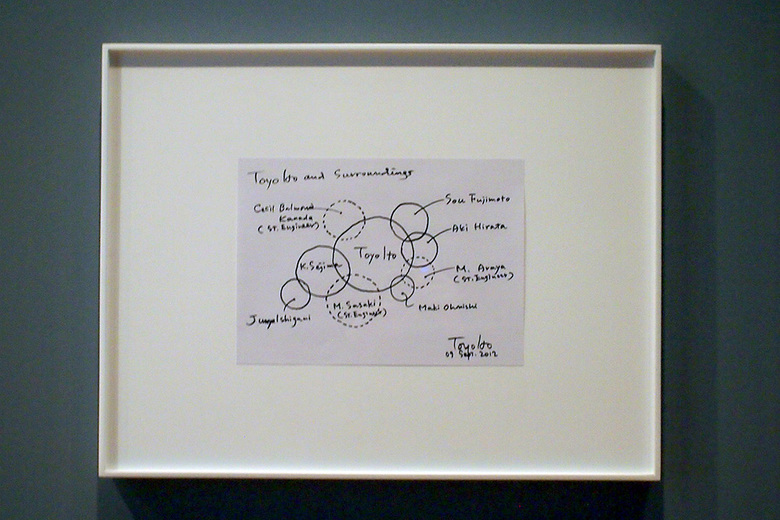 Toyo Ito and Surroundings
Cecil Balmond
Kanada
(St. Engineer)
Sou Fujimoto
Aki Hirata
Toyo Ito
K. Sejima
M. Araya
(St. Engineer)
M. Sasaki
(St. Engineer)
Maki Ohnishi
Junya Ishigami
Toyo Ito
09 Sept. 2012